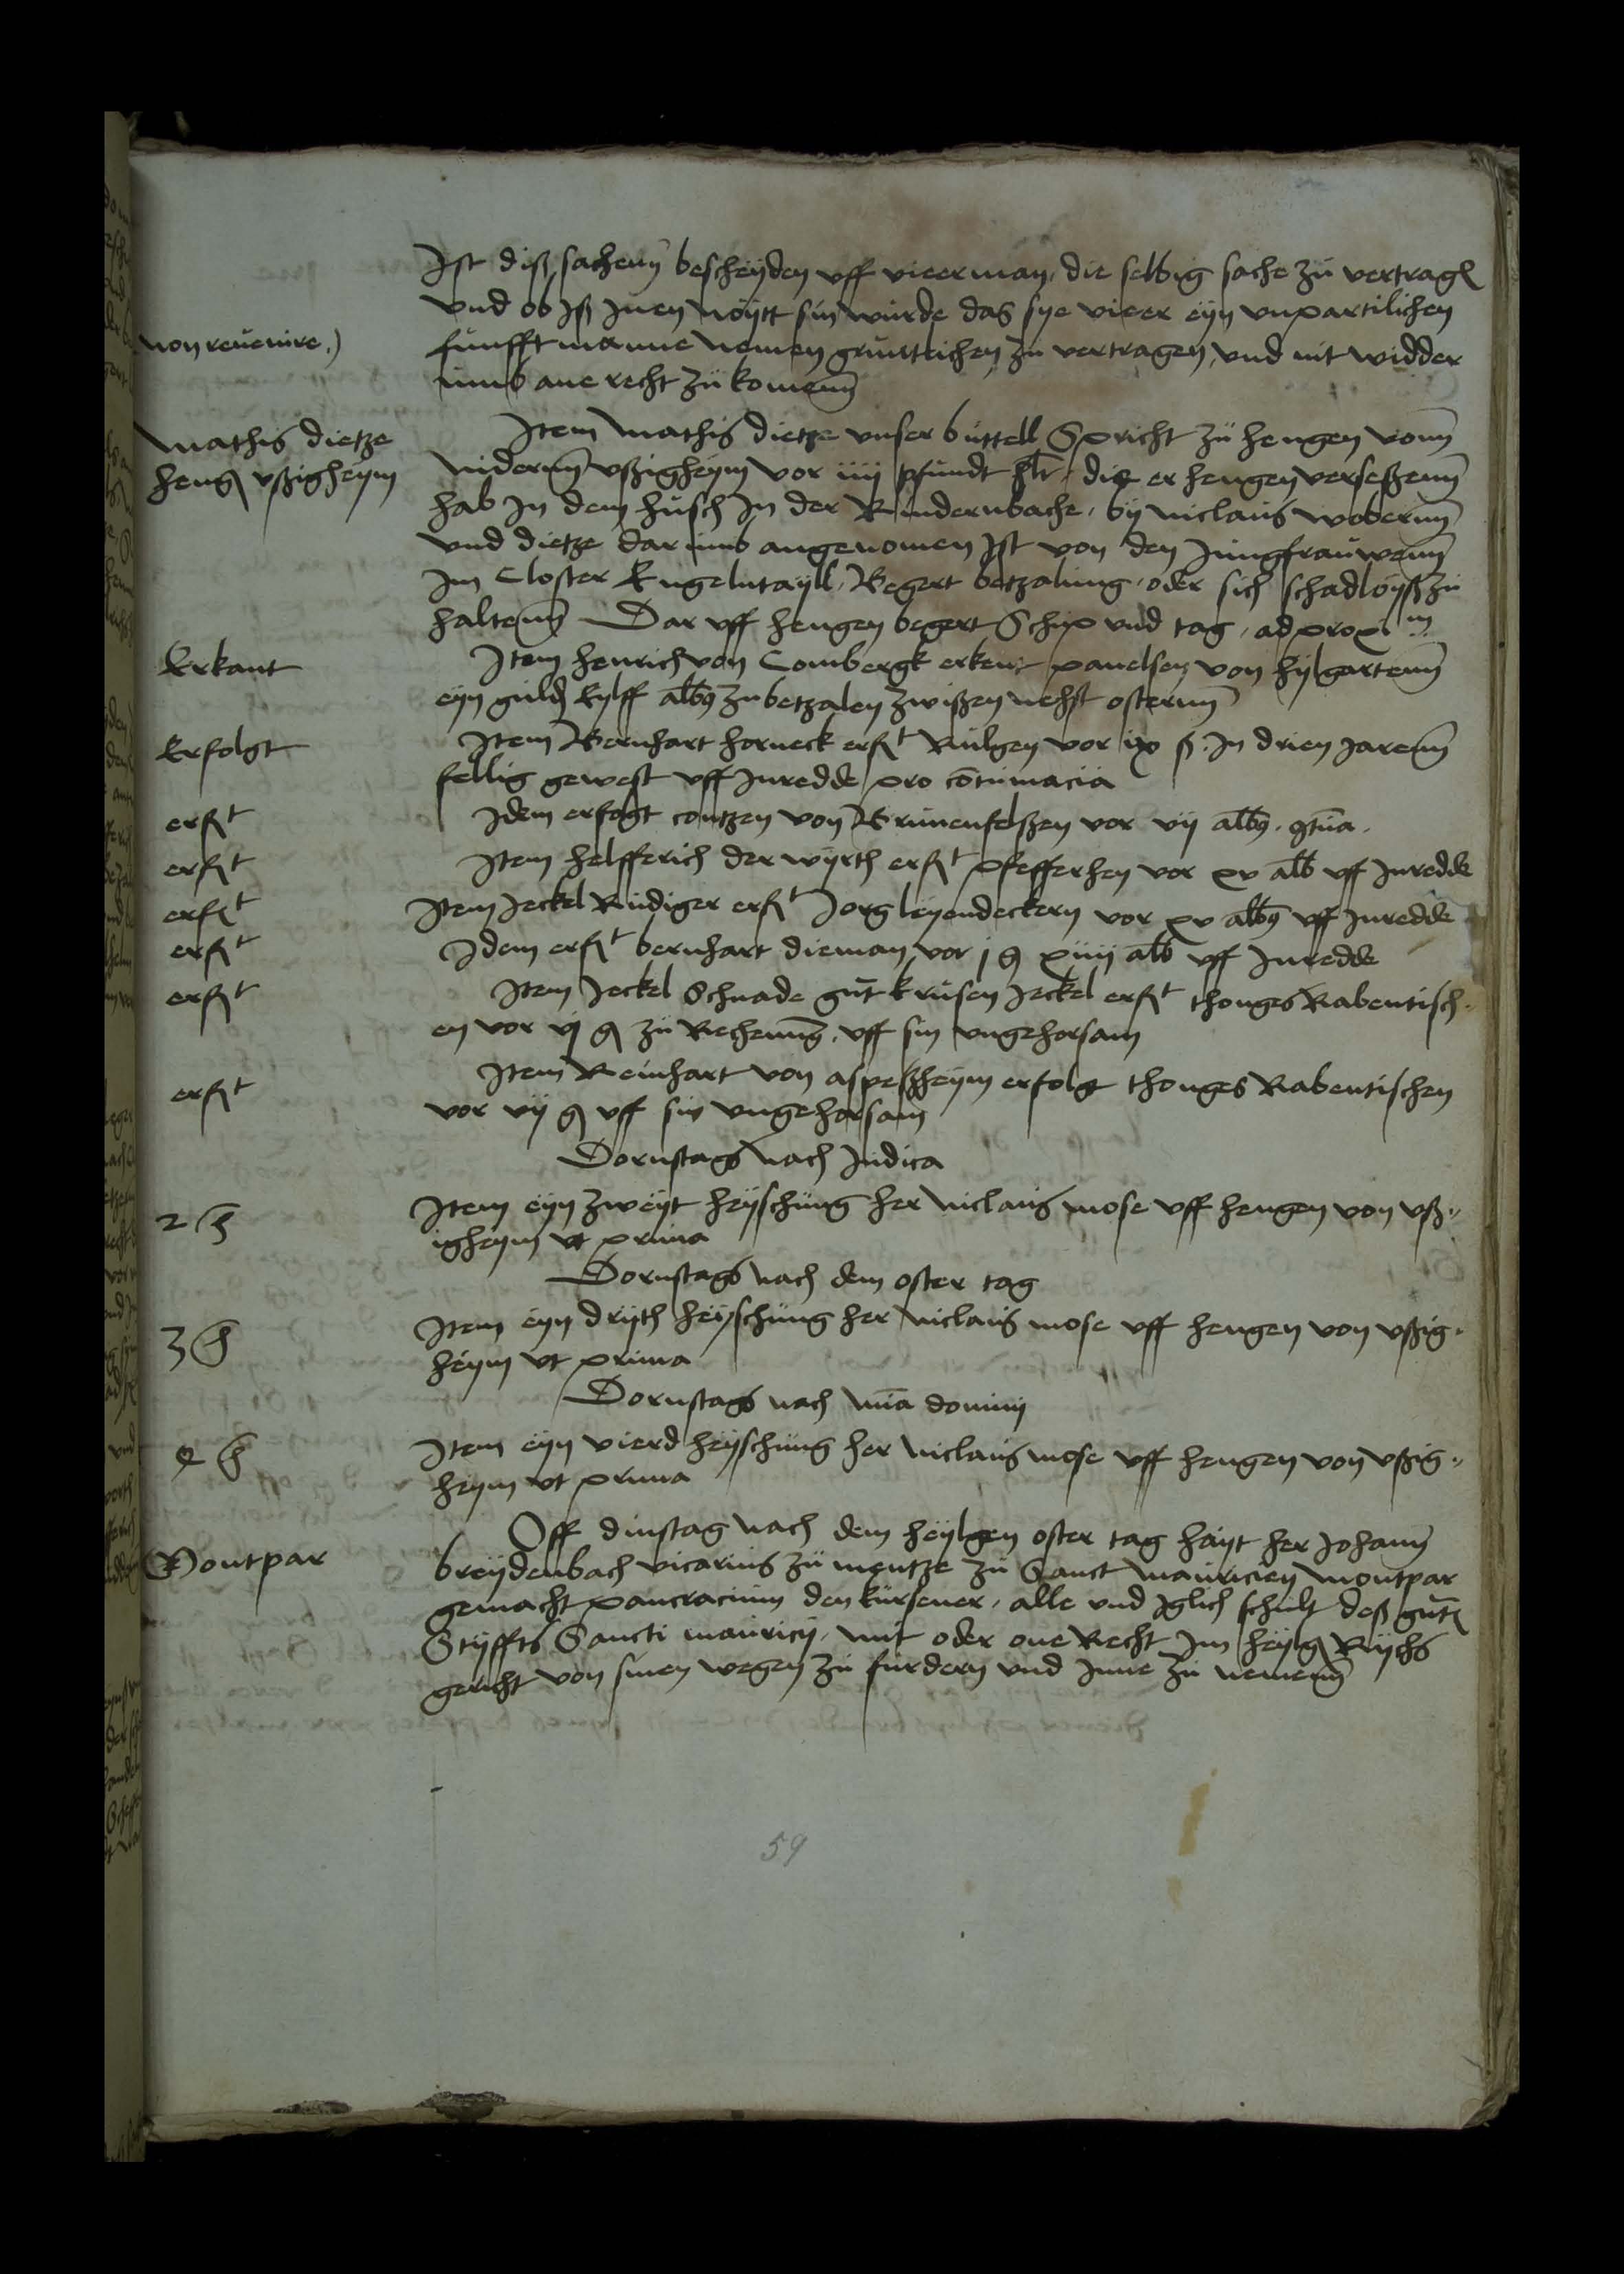 Ist diß sachenn bescheyden uff vieer man, die selbig sache zu vertrag
und ob Iß Inen noytt sin wurde das sye vieer eyn unpartilichen
non revenire
funfft manne nemen gruntlichen zu vertragen, und nit widder
umb ane recht zu komenn
Mathis dietze
heng ußigheym
Item Mathis dietze unser buttell Spricht zu hengen vonn
nidernn ußigheym vor iiij pfundt hlr, die er hengen verseßenn
hab In dem husch In der Rindernbache, by niclaus wobernn
und dietze dar umb angenomen Ist von den Jungfrauwenn
Im Closter Engelntayll, Begert betzalung, oder sich schadloyß zu
haltenn Dar uff hengen begert Schip und tag, ad proxim
Erkant
Item henrich von Combergk erkent pauelsen von hylgartenn
eyn guld Eylff albg zubetzalen zwißen nehst osternn
Erfolgt
Item Bernhart horneck erft Rulgen vor ix ß. In drien Jarenn
fellig gewest uff Inredde pro contumacia
erft
Idem erfogt contzen von Brunenfelßen vor vij albg. gtua.
erft
Item helfferich der wyrth erft pfefferhen vor xv alb uff Inredde
erft
Item Jeckel Rudiger erft Jorg leyendeckern vor xv albg uff Inredde
erft
Idem erft bernhart dieman vor j g xiiij alb uff Inredde
erft
Item Jeckel Schnade gut krusen Jeckel erft thonges Rabentisch
en vor vj g zu Rechenung, uff sin ungehorsam
erft
Item Reinhart von aspeßheym erfolgt thonges Rabentischen
vor vij g uff sin ungehorsam
Dornstags nach Judica
2 h
Item eyn zweyt heyschung her niclaus mose uff hengen von uß
igheym ut prima
Dornstags nach dem oster tag
3 h
Item eyn dryth heyschung her niclaus mose uff hengen von ußig
heym ut prima
Dornstags nach mia domini
4 h
Item eyn vierd heyschung her niclaus mose uff hengen von ußig
heym ut prima
Montpar
Off dinstag nach dem heylgen oster tag hayt her Johann
breydenbach vicarius zu mentze zu Sanct Mauricien montpar
gemacht pancracium den kursener, alle und Iglich schult deß gut
Styffts Sancti mauricij, mit oder one Recht Im heylg Rychs
gericht von sinen wegen zu furdern und Inne zu nemenn
59